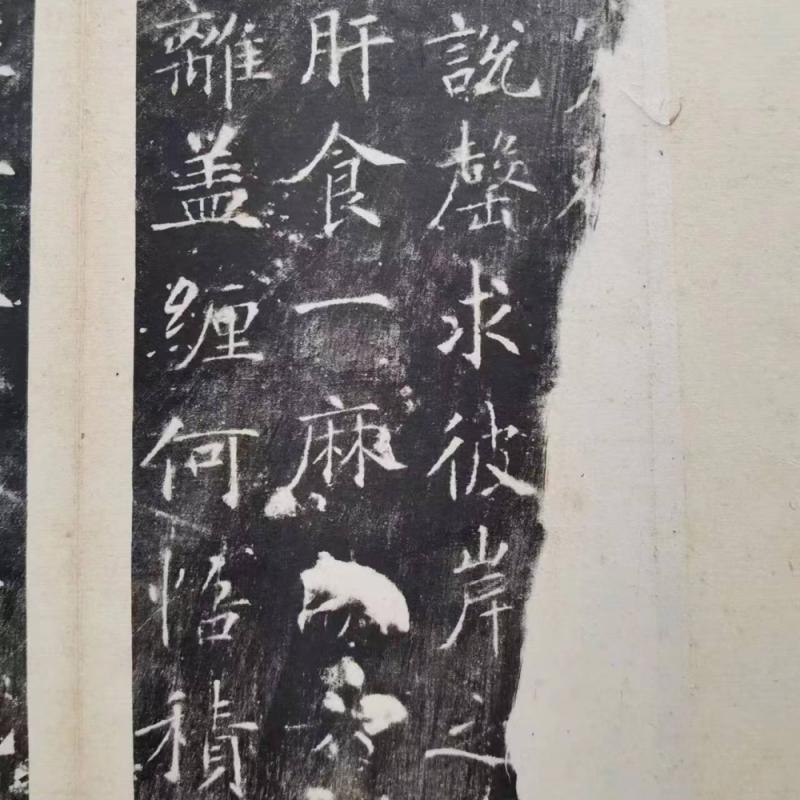 說罄求彼岸之
肝食一麻
離盖緾何悋積